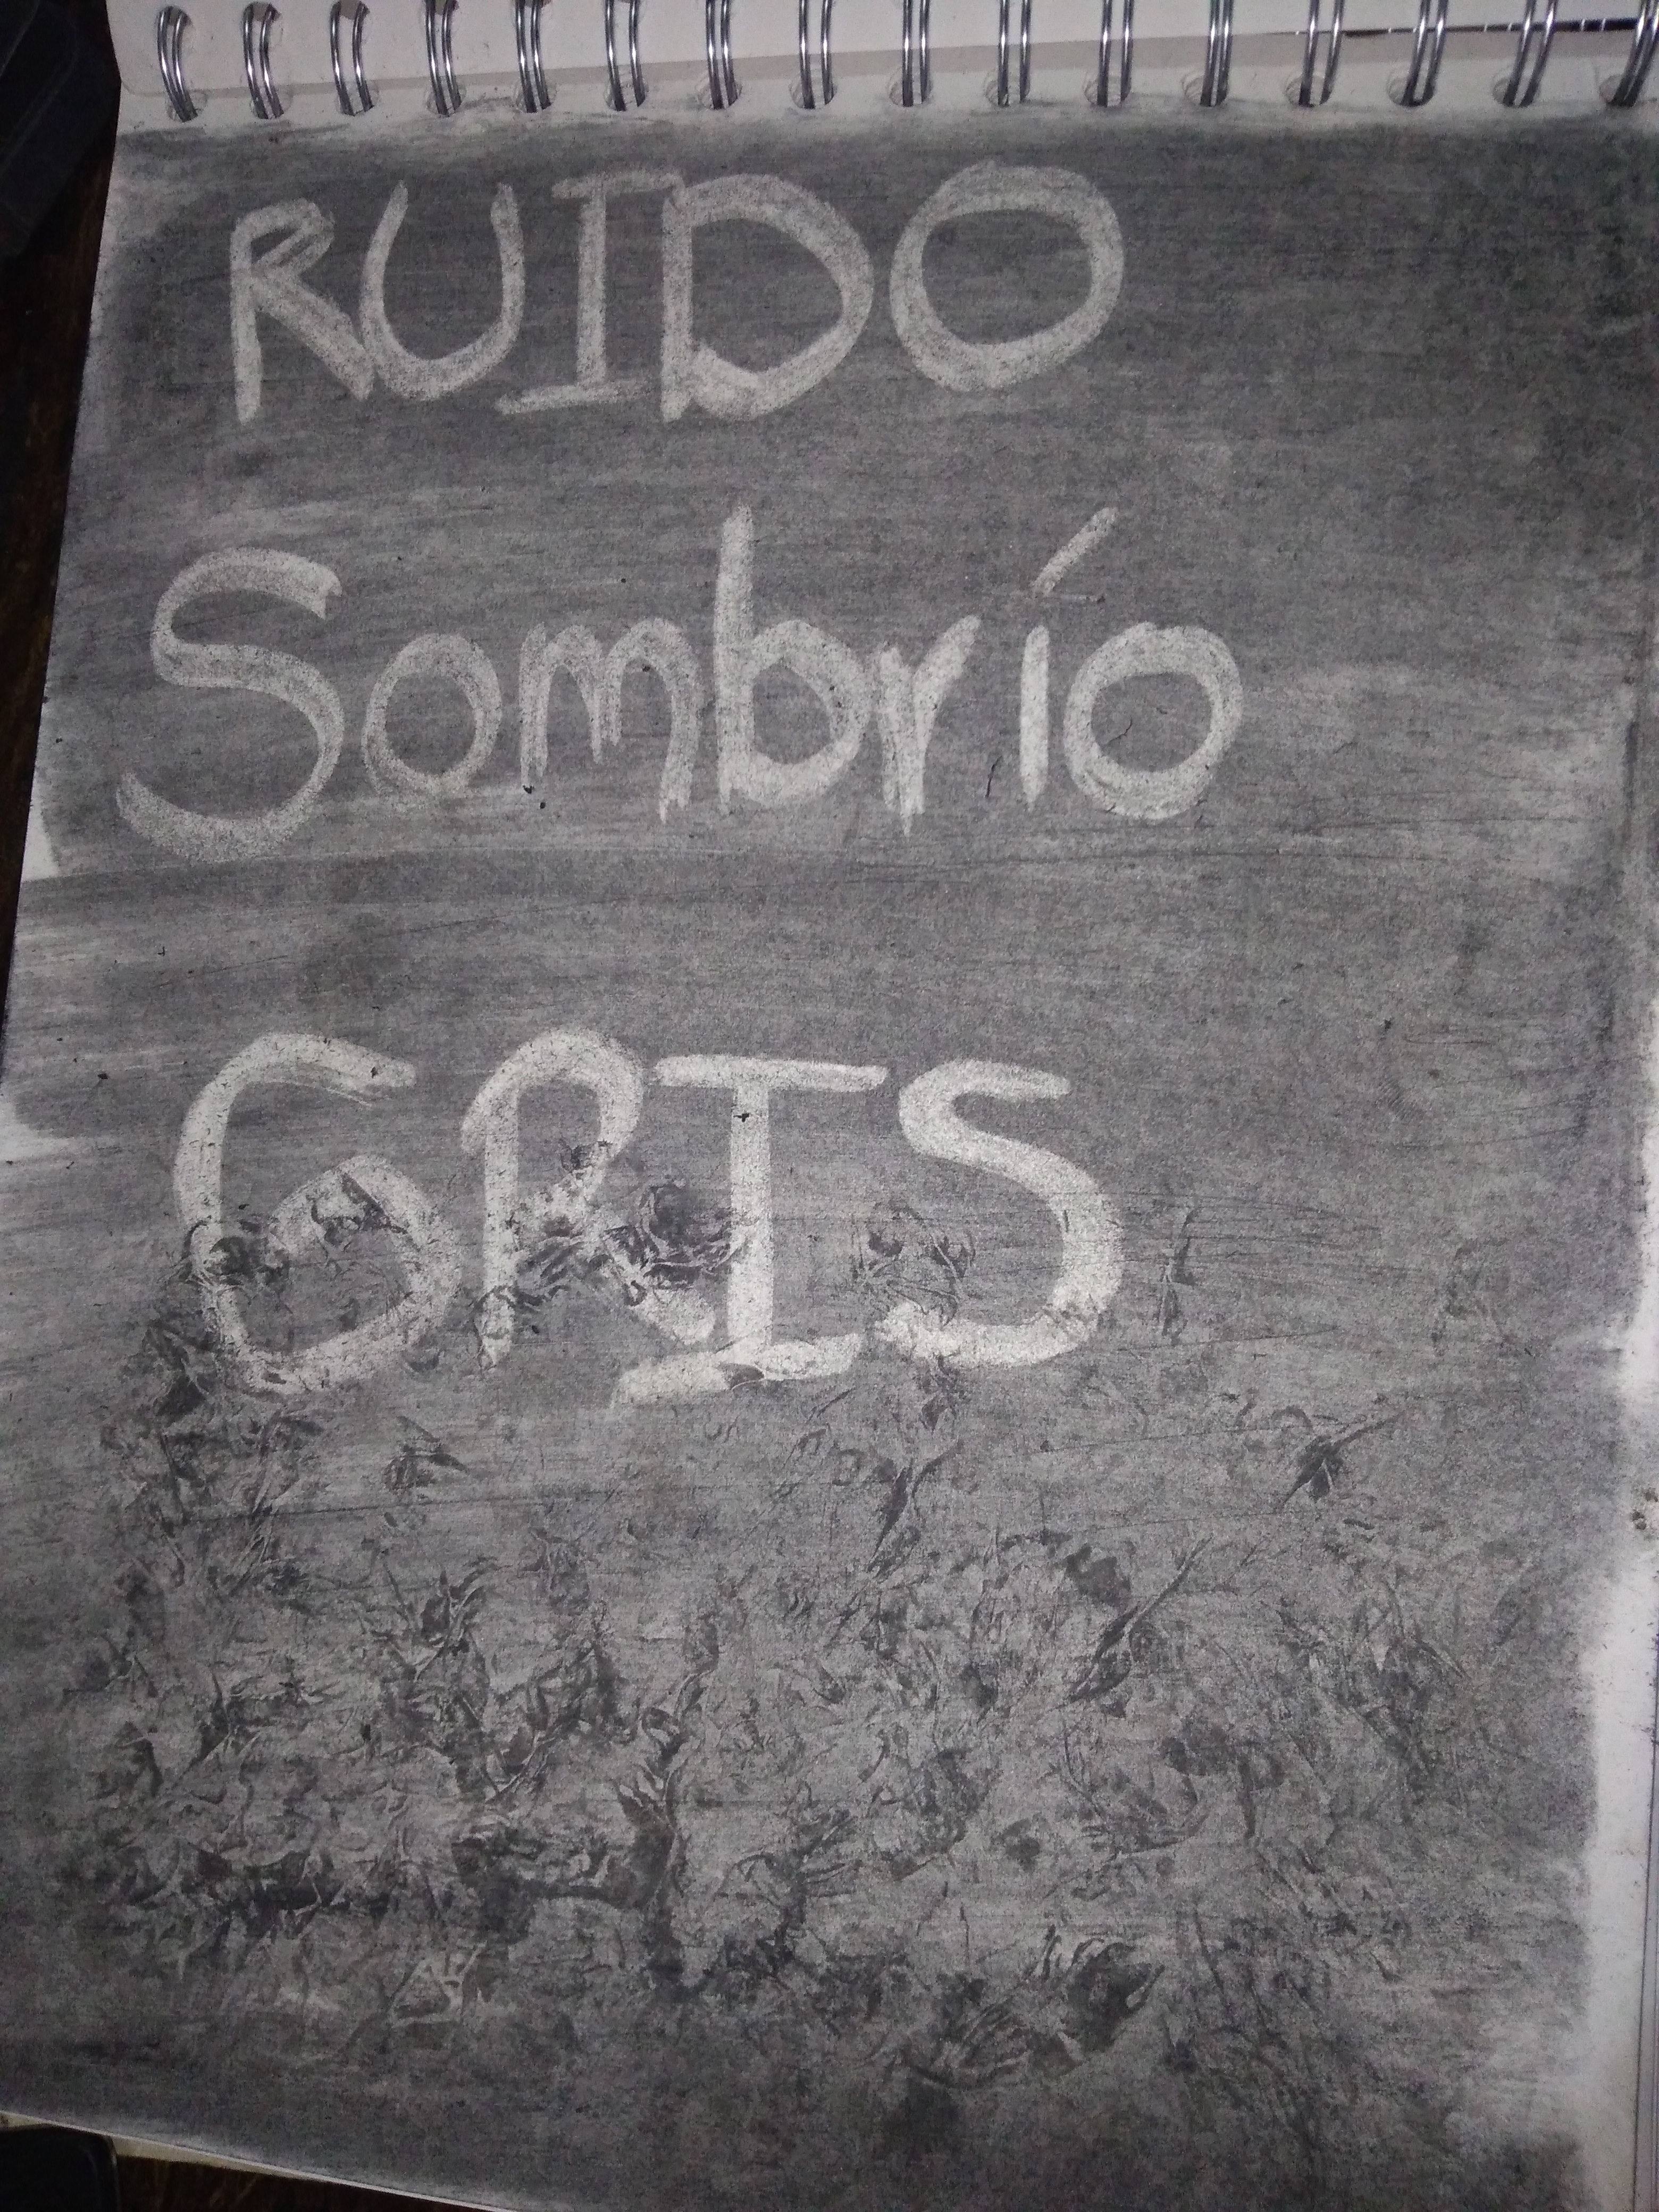 RUIDO
Sombrío
GRIS